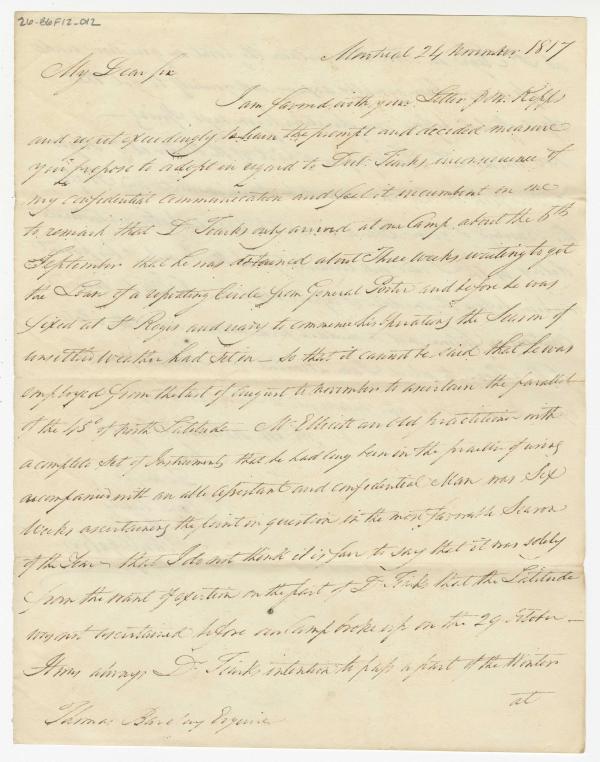 26-86F12-012
Montreal 24 November 1817
My Dear Sir
I am favord with your Letter pr Mr. Ripps
and regret exceedingly to learn the prompt and decided measure
you propose to adopt in regard to Doct. Tiarks in consequence of
my confidential communication and feel it incumbent on me
to remark that Dr Tiarks only arrived at our Camp about the 6th
September that he was detained about Three weeks waiting to get
the Loan of a repeating Circle from General Porter and before he was
fixed at St Regis and ready to commence his operations the Season of
unsettled weather had set in — So that it cannot be said that he was
employed from the last of august to November to ascertain the parallel
of the 45° of North Latitude — Mr Ellicott an Old practitioner with
a complete Set of Instruments that he had long been in the practice of using
accompanied with an able assistant and confidential Man was Six
Weeks ascertaining the point in question in the most favorable Season
of the Year — that I do not think it is fair to say that it was solely
from the want of exertion on the part of Dr Tiarks that the Latitude
was not ascertained before our Camp broke up on the 29 October —
It was always Dr Tiarks intention to pass a part of the Winter
at
Thomas Barclay Esquire